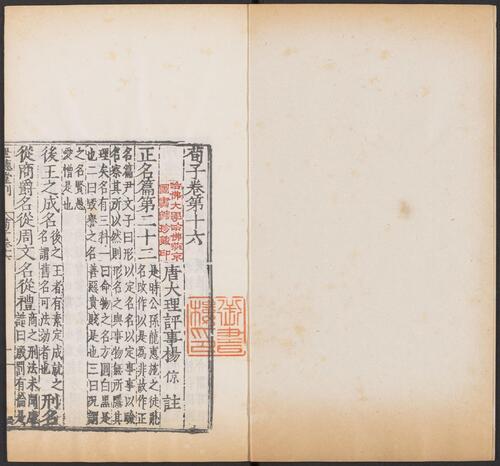 荀子卷第十六
唐大理評事楊 倞 註
正名篇第二十三
是時公孫龍惠施之徒亂
名改作以是爲非故作正
名篇尹文子曰形以定名名以定事事以驗
名察其所以然則形名之與事物無所隱其
理矣名有三科一曰命物之名方圓白黑是
也二曰毀譽之名善惡貴賤是也三曰况謂
之名賢愚
愛憎是也
後王之成名
後之王者有素定成就之
名謂舊名可法効者也
刑名
從商爵名從周文名從禮
商之刑法未聞康
誥曰殷罰有倫是
哈佛大學哈佛燕京
圖書館珍藏印
御書